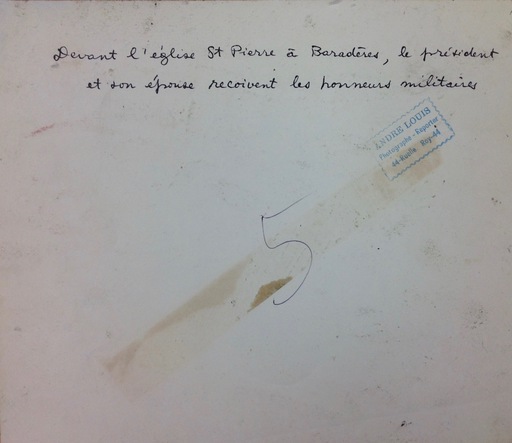 Devant l'église St Pierre à Baradères, le président
et son épouse recoivent les honneurs militaires
ANDRE LOUIS
Photographe - Reporter
44-Ruelle Roy-44
5